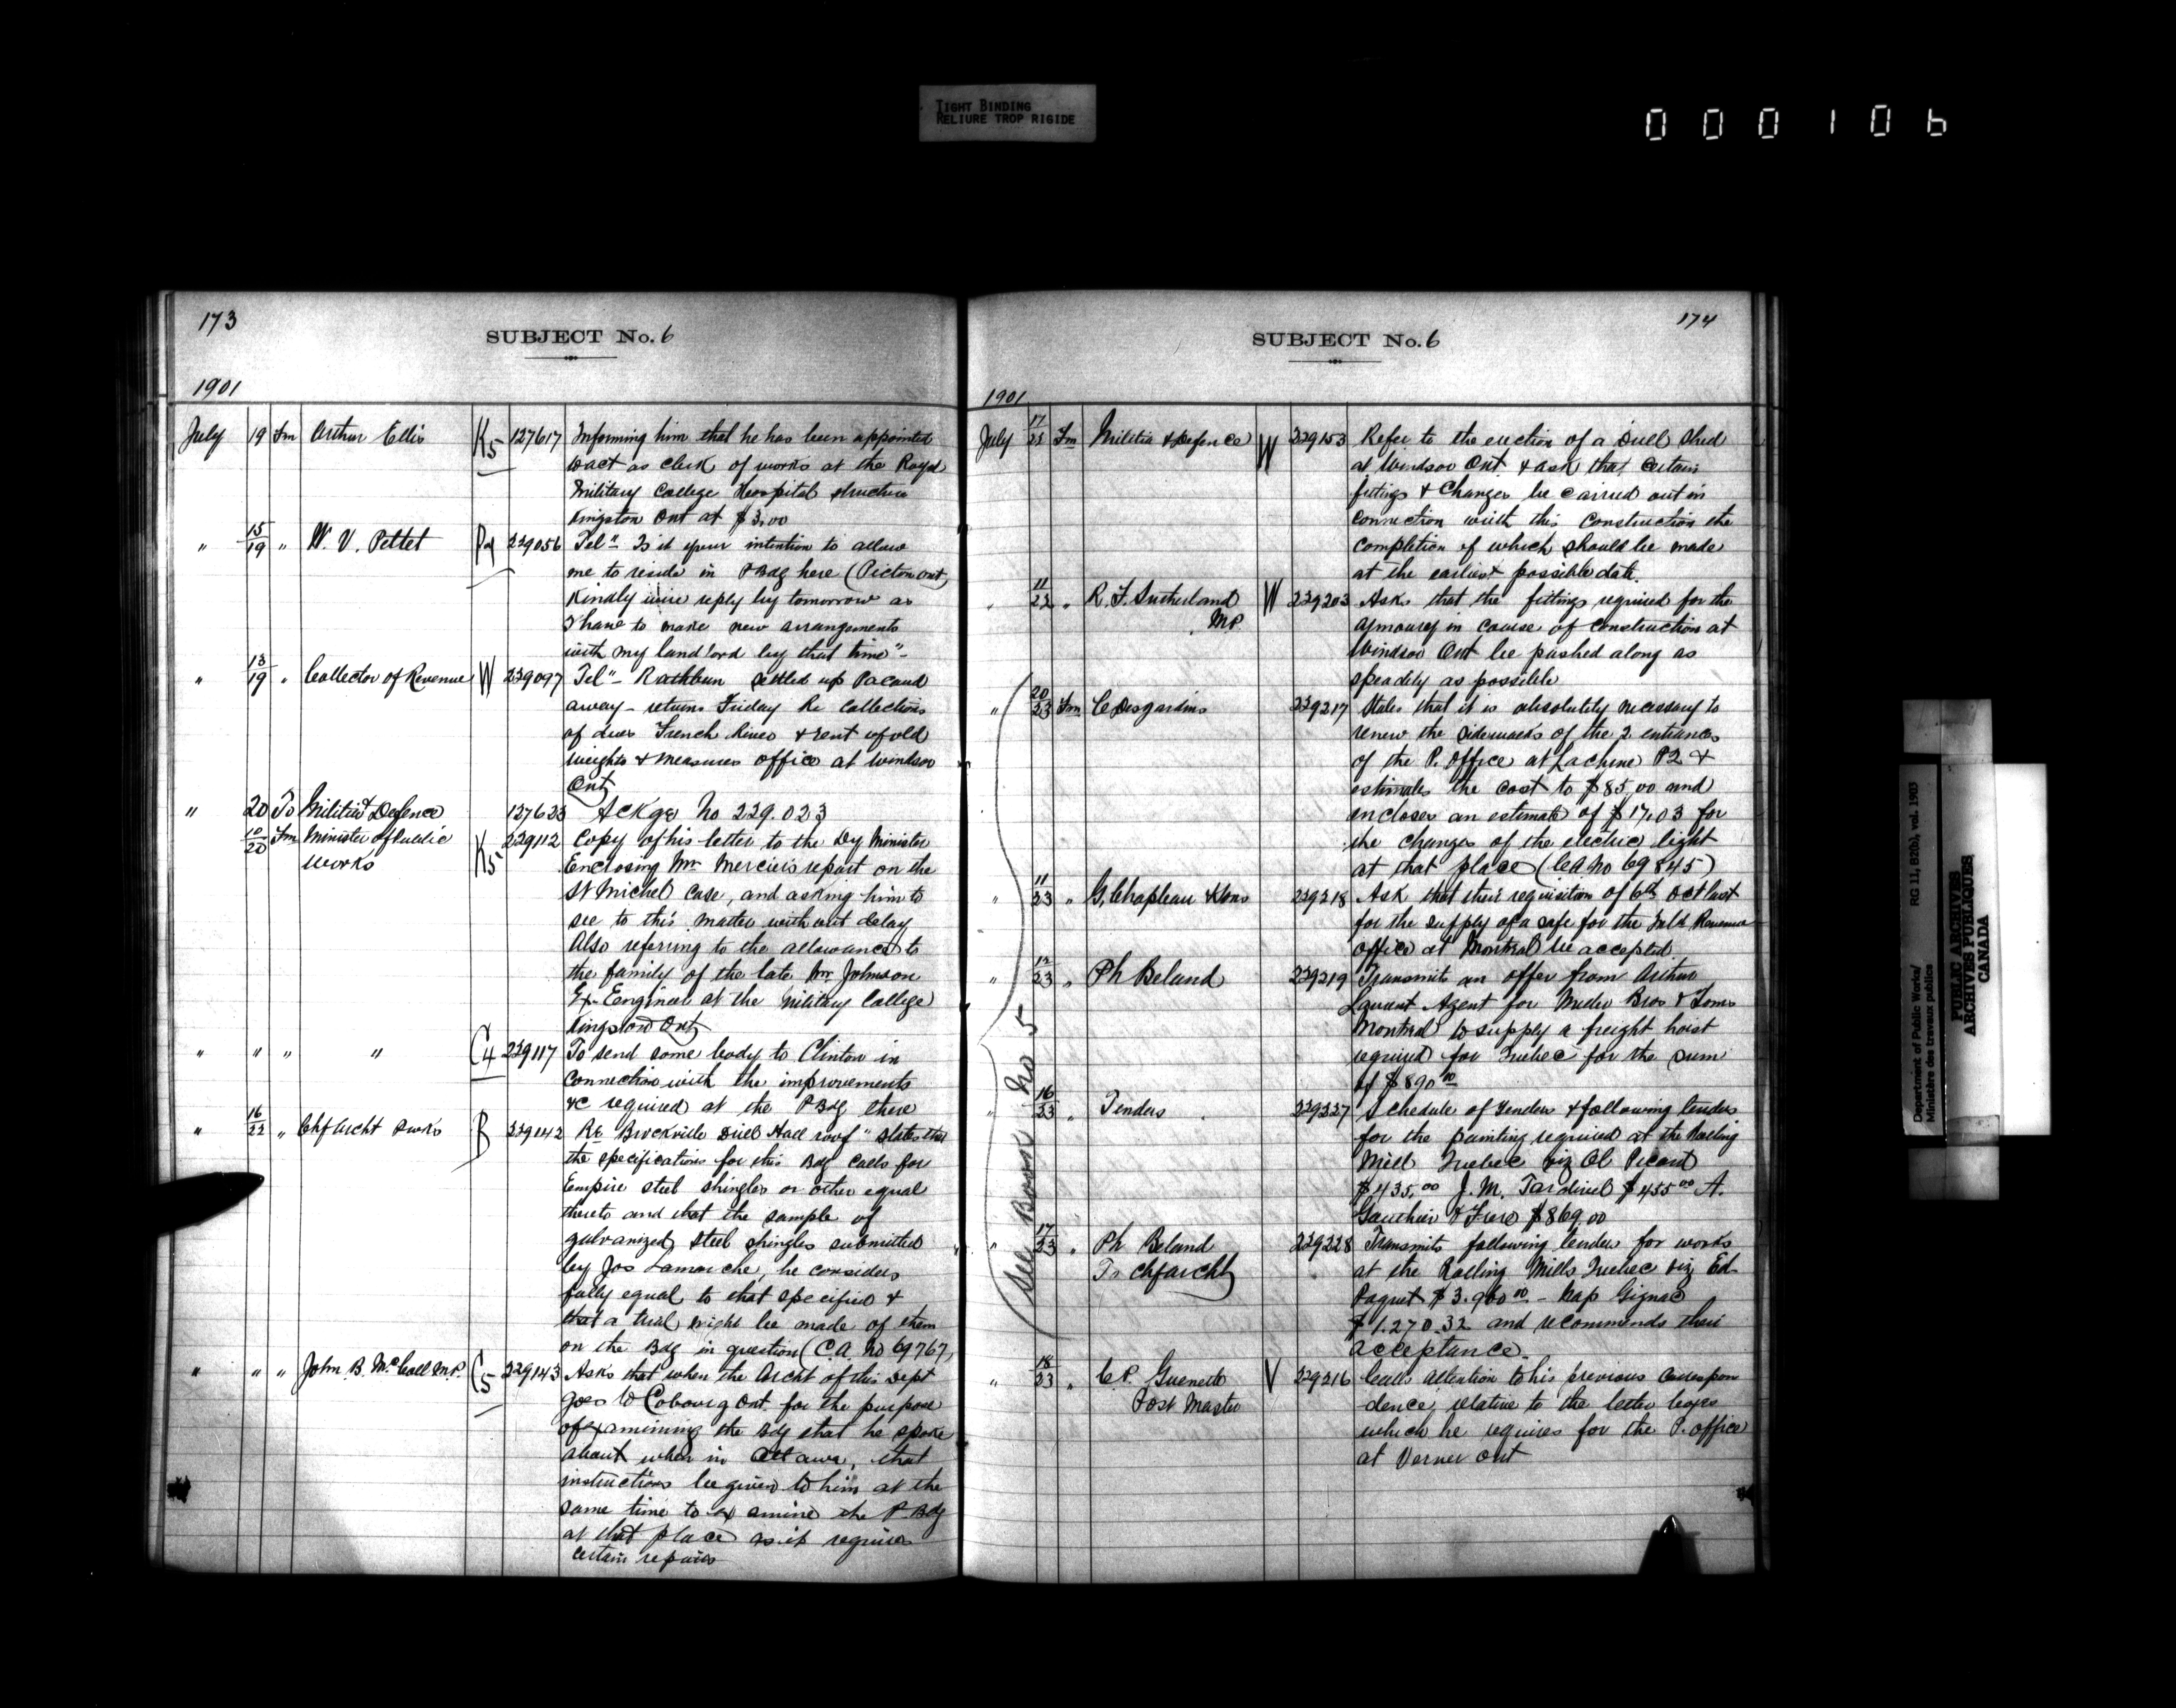 TIGHT BINDING
RELIURE TROP RIGIDE
000106
173
SUBJECT No. 6
1901
July 19 Fm Arthur Ellis K5 127617 Informing him that he has been appointed
to act as clerk of works at the Royal
Military College Hospital structure
Kingston Ont at $3.00
" 15/19 " W. V. Pettet 229056 Tel" Is it your intention to allow
me to reside in PBdg here (Picton Ont)
Kindly wire reply by tomorrow as
I have to make new arrangements
with my landlord by that time"-
" 13/19 " Collector of Revenue W 229097 Tel"- Rathbun settled up Pacaud
away - returns Friday Re Collections
of dues French River & rent of old
weights & measures office at Windsor
Ont
" 20 To Militia & Defence 127623 Ackge No 229.023
10/20 Fm Minister of Public K5 229112 Copy of his letter to the Dy Minister
Works Enclosing Mr Mercier's report on the
St Michel Case, and asking him to
see to this matter without delay
Also referring to the allowance to
the family of the late Mr Johnson
Ex-Engineer at the Military College
Kingston Ont
" " " " C4 229117 To send some body to Clinton in
connection with the improvements
&c required at the PBdg there
" 16/22 " Chf Archt Dwks B 229142 Re Brockville Drill Hall roof" States that
the specifications for this Bdg calls for
Empire steel shingles or other equal
thereto and that the sample of
galvanized steel shingles submitted
by Jos Lamarche, he considers
fully equal to that specified &
that a trial might be made of them
on the Bdg in question (C.A. No 69767)
" " " John B. McColl M.P. C5 229143 Asks that when the Archt of this Dept
goes to Cobourg Ont. for the purpose
of examining the Bdg that he spoke
about when in Ottawa, that
instructions be given to him at the
same time to examine the P. Bdg
at that place as it requires
certain repairs
174
SUBJECT No. 6
1901
July 17/23 Fm Militia & Defence W 229153 Refer to the erection of a Drill Shed
at Windsor Ont & ask that certain
fittings & changes be carried out in
connection with this construction the
completion of which should be made
at the earliest possible date.
" 11/22 " R. F. Sutherland W 229203 Asks that the fittings required for the
MP. armoury in course of construction at
Windsor Ont be pushed along as
speadily as possible
" 20/23 Fm C Desjardins 229217 States that it is absolutely necessary to
renew the sidewalks of the 2 entrances
of the P. Office at Lachine PQ &
estimates the cost to $85.00 and
encloses an estimate of $17.03 for
the changes of the electric light
at that place (CA No 69845)
" 11/23 " G. Chapleau & Sons 229218 Ask that their requisition of 6th Oct last
for the supply of a safe for the Inld Revenue
office at Montreal be accepted.
" 12/23 " Ph Beland 229219 Transmits an offer from Arthur
Agent for Miller Bros & Toms
Montreal to supply a freight hoist
required for Quebec for the sum
of $890.00
" 16/23 " Tenders 229227 Schedule of tenders & following tenders
for the painting required at the Rolling
Mill Quebec viz Ol Picard
$435.00 J. M. Tardivel $455.00 A.
Gauthier & Frere $869.00
" 17/23 " Ph Beland 229228 Transmits following tenders for works
To Chf Archt at the Rolling Mills Quebec viz Ed
Paquet $3.960.00 - Nap Gignac
$1.270.32 and recommends their
acceptance.
" 18/23 " C. P. Guenette V 229216 Calls attention to his previous correspon
Post Master dence, relative to the letter boxes
which he requires for the P. office
at Verner Ont
(See Book No 5
Department of Public Works/
Ministère des travaux publics
RG 11, B2(b), vol. 1903
PUBLIC ARCHIVES
ARCHIVES PUBLIQUES
CANADA